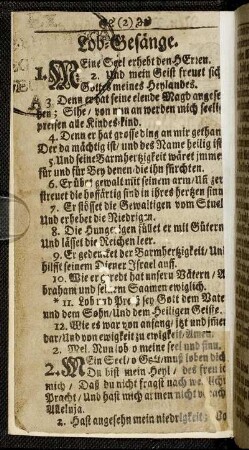 (2)
Lob-Gesänge.
1. MEine Seel erhebt den HErren.
2. Und mein Geist freuet sich
Gottes meines Heylandes.
3 Denn er hat seine elende Magd angese
hen; Sihe, von nun an werden mich seelig
preisen alle Kindes-kind.
4. Denn er hat grosse ding an mir gethan
Der da mächtig ist, und des Name heilig ist
5. Und seine Barmhertzigkeit wäret immer
für und für Bey denen die ihn fürchten.
6. Er übet gewalt mit seinem arm/Uñ zer
streuet die hoffärtig sind in ihres hertzen sinn
7. Er stösset die Gewaltigen vom Stuel
Und erhebet die Niedrigen.
8. Die Hungerigen füllet er mit Gütern
Und lässet die Reichen leer.
9. Er gedencket der Barmhertzigkeit/Und
hilft seinem Diener Israel auff.
10. Wie er geredt hat unsern Vätern/A
braham und seinem Saamen ewiglich.
* 11. Lob und Preiß sey Gott dem Vate
und dem Sohn/Und dem Heiligen Geiste.
12. Wie es war von anfang/ jtzt und jm̃er
dar/Und von ewigkeit zu ewigkeit/Amen.
2. Mel. Nun lob o meine seel und sinn.
2. MEin Seel/ o Gott/ muß loben dich
Du bist mein Heyl/ des freu ic
mich/ Daß du nicht fragst nach weltlich
Pracht/ Und hast mich armen nicht ve
Alleluja.
2. Hast angesehn mein niedrigkeit;